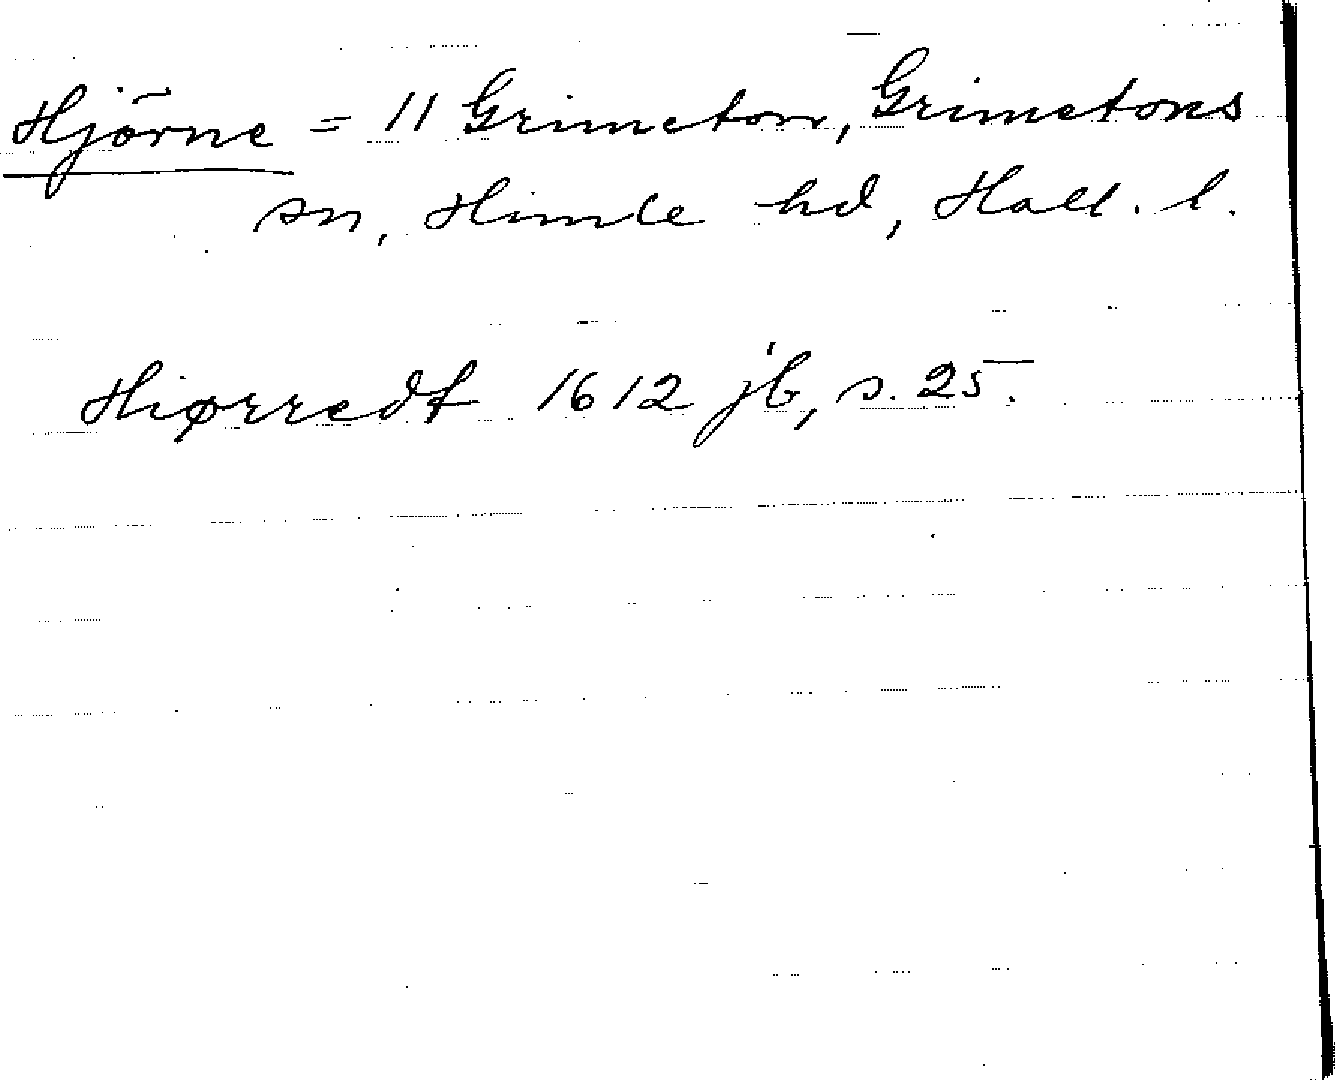 Hjörne = 11 Grimeton, Grimetons
sn, Himle hd, Hall. l.
Hiørredt 1612 jb, s. 25.